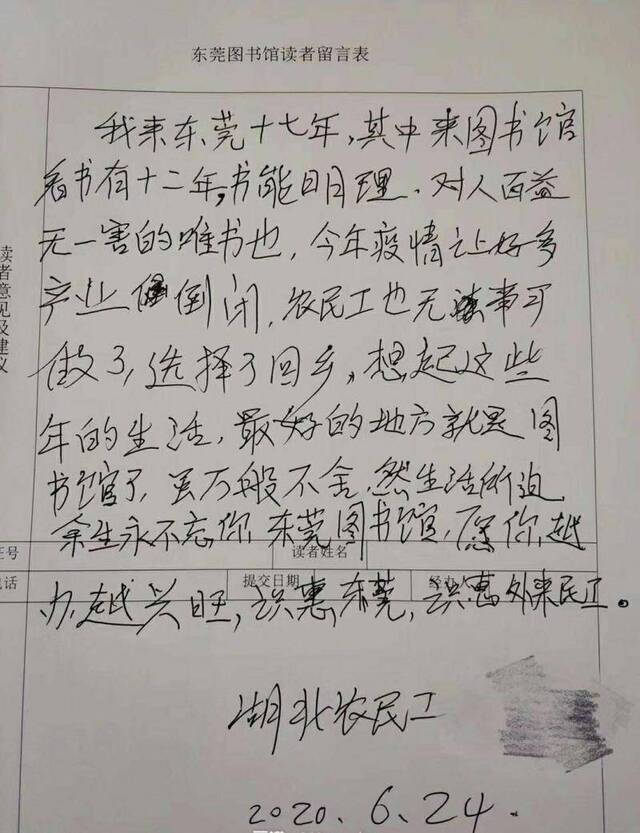 东莞图书馆读者留言表
我来东莞十七年，其中来图书馆
看书有十二年，书能明理、对人百益
无一害的唯书也，今年疫情让好多
产业倒闭，农民工也无事可
做了，选择了回乡，想起这些
年的生活，最好的地方就是图
书馆了，虽万般不舍，然生活所迫
余生永不忘你，东莞图书馆，愿你越
办越兴旺，识惠东莞，识惠外来民工。
读者意见及建议
证号
读者姓名
电话
提交日期
经办人
湖北农民工
2020.6.24.